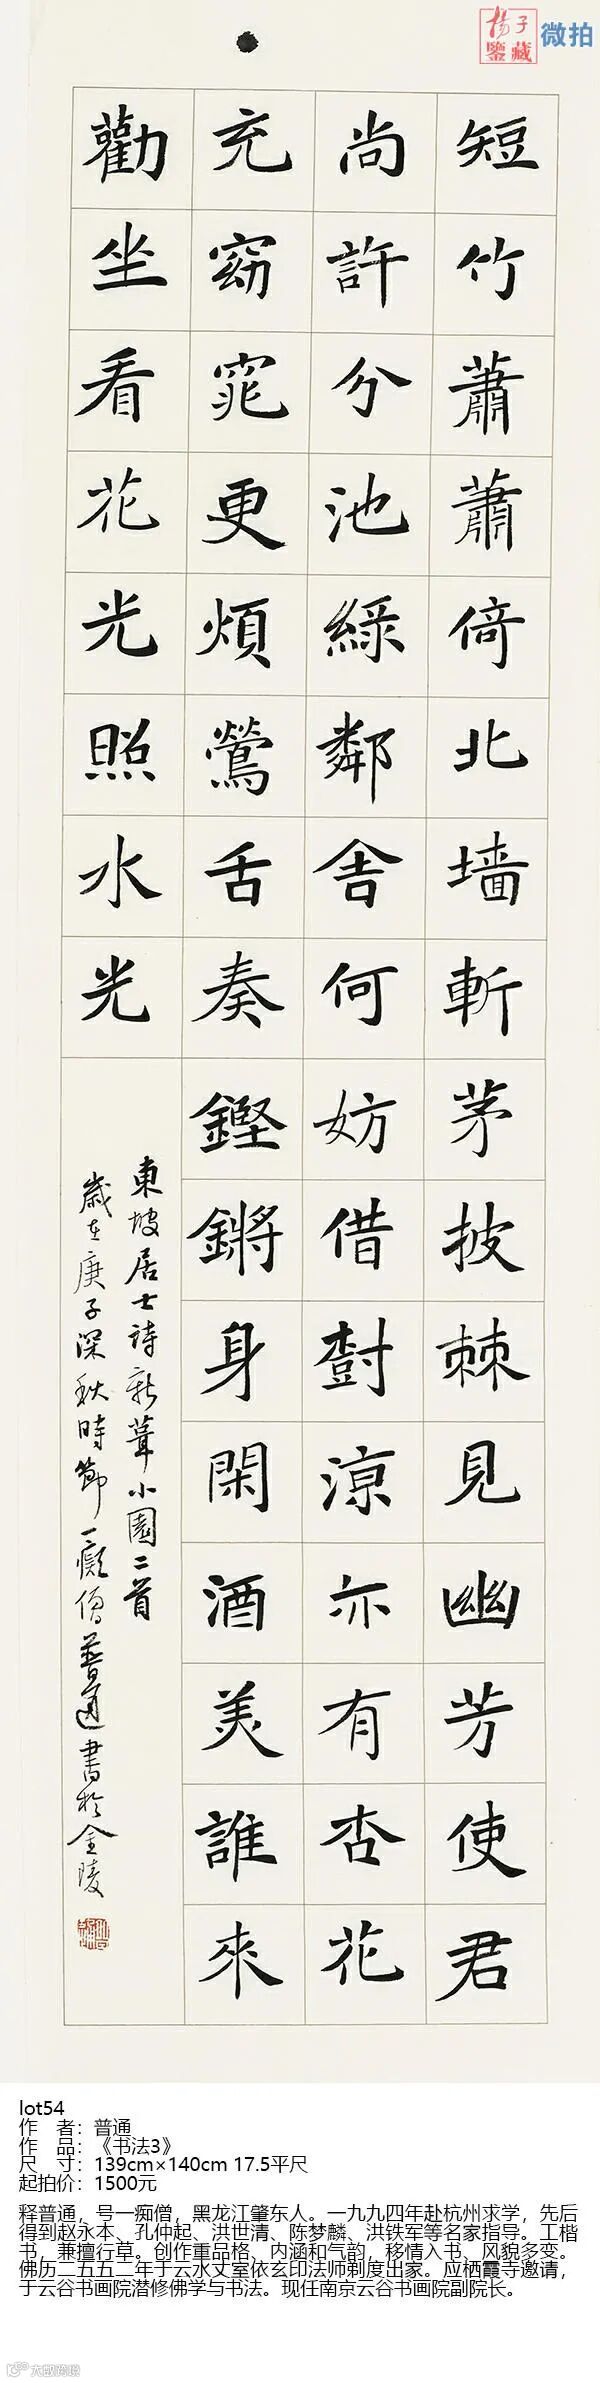 揚子
鑒藏
微拍
短竹蕭蕭倚北墙斬茅披棘見幽芳使君
尚許分池綠鄰舍何妨借樹凉亦有杏花
充窈窕更煩鶯舌奏鏗鏘身閑酒美誰來
勸坐看花光照水光
東坡居士詩新葺小園二首
歲在庚子深秋時節一癡僧普通書於金陵
lot54
作 者：普通
作 品：《书法3》
尺 寸：139cm×140cm 17.5平尺
起拍价：1500元
释普通，号一痴僧，黑龙江肇东人。一九九四年赴杭州求学，先后
得到赵永本、孔仲起、洪世清、陈梦麟、洪铁军等名家指导。工楷
书，兼擅行草。创作重品格、内涵和气韵，移情入书，风貌多变。
佛历二五五二年于云水丈室依玄印法师剃度出家。应栖霞寺邀请，
于云谷书画院潜修佛学与书法。现任南京云谷书画院副院长。
大砍跨境